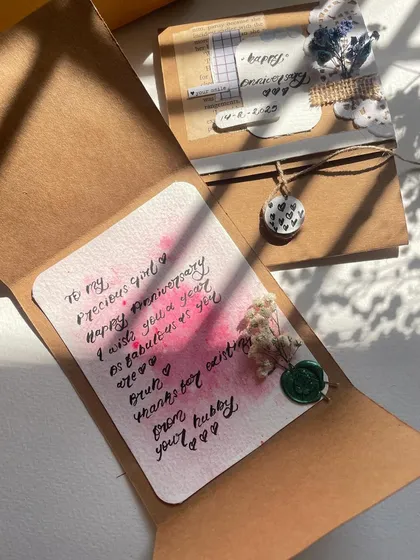 happy
Anniversary
♡♡♡
♥ your smile
To my
Precious Girl ♡
Happy Anniversary
I wish you a year
as fabulous as you
are ♡♡
Bruh ♡
thanks for existing
from
your hubby
♡♡♡